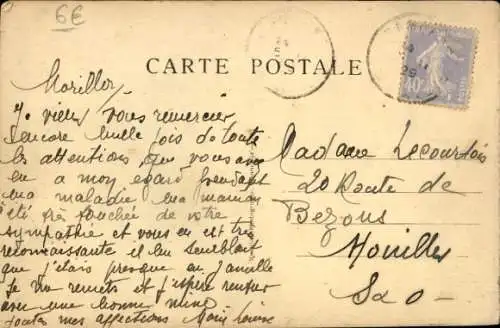 6€
CARTE POSTALE
40c
Je viens vous remercier
encore mille fois de toute
les attentions que vous avie
eu a mon egard pendant
ma maladie ma maman
été très touchée de votre
sympathie et vous en est très
reconnaissante il lui semblait
que j'étais presque en famille
Je vous remets et j'espère rentrer
avec une bonne mine
toutes mes affections Marie Louise
Madame Lecourtois
20 Route de
Bezons
Houilles
S et O